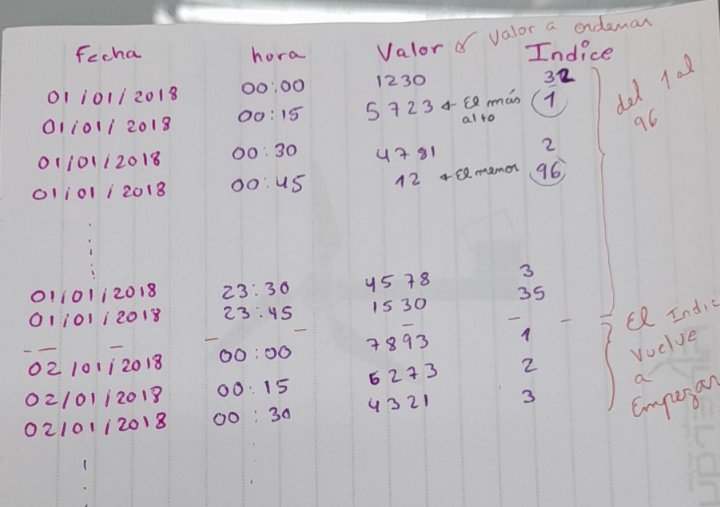 Fecha hora Valor & Valor a ordenar Indice
01/01/2018 00:00 1230 32
01/01/2018 00:15 5723 ← El más alto 1
01/01/2018 00:30 4781 2
01/01/2018 00:45 12 ← El menor 96
del 1 al 96
01/01/2018 23:30 4578 3
01/01/2018 23:45 1530 35
02/01/2018 00:00 7893 1
02/01/2018 00:15 6273 2
02/01/2018 00:30 4321 3
El Indic
Vuelve
a
Empezar